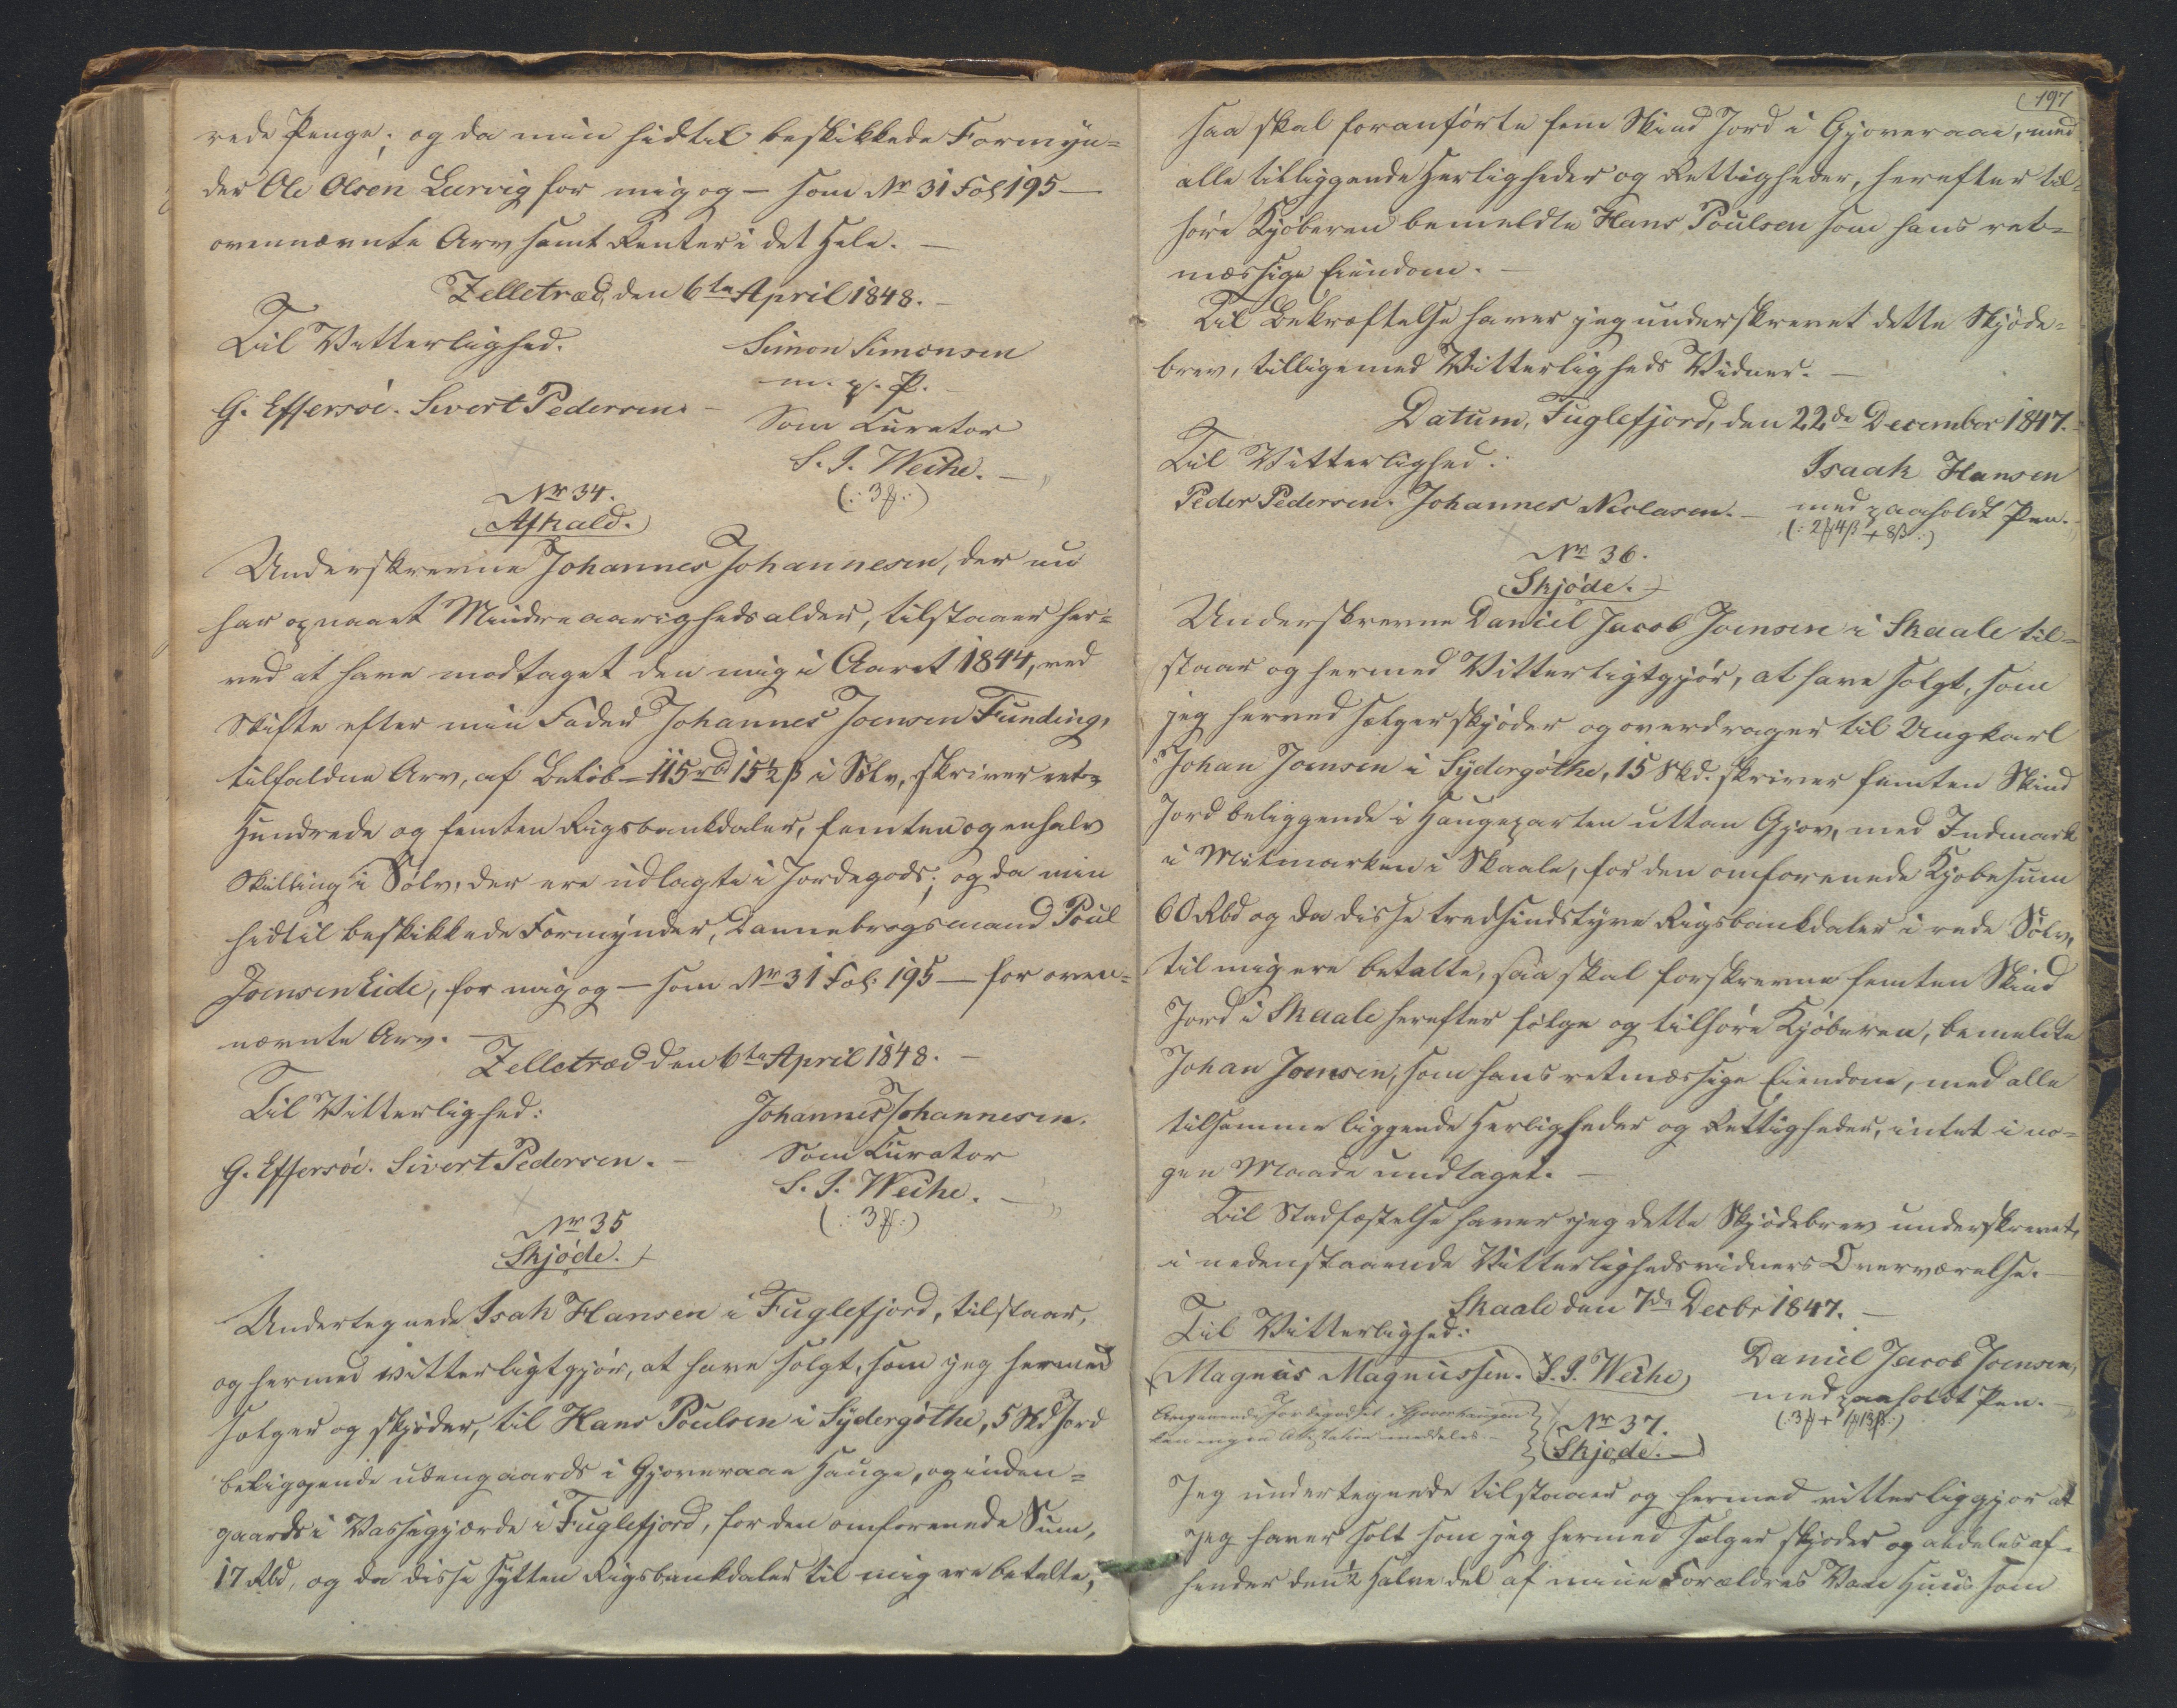 rede Penge; og da min hidtil beskikkede Formyn=
der Ole Olsen Lervig for mig og — som Nr 31 Fol 195 —
ovennævnte Arv samt Renter i det Hele. —
Zelletræd, den 6te April 1848. —
Til Vitterlighed. Simon Simonsen
m. p. P.
G. Effersøe. Sivert Pedersen. — Som Curator
S. J. Weihe. —
(: 3 ß :)
Nr 34.
Afkald.
Underskrevne Johannes Johannesen, der nu
har opnaaet Mindreaarighedsalder, tilstaaer her=
ved at have modtaget den mig i Aaret 1844, ved
Skifte efter min Fader Johannes Joensen Funding,
tilfaldne Arv, af Beløb — 115 rd 15½ ß i Sølv, skriver eet
Hundrede og femten Rigsbankdaler, femten og en halv
Skilling i Sølv, der ere udlagte i Jordegods; og da min
hidtil beskikkede Formynder, Dannebrogsmand Poul
Joensen Eide, for mig og — som Nr 31 Fol. 195 — for oven=
nævnte Arv. —
Zelletræd den 6te April 1848. —
Til Vitterlighed: Johannes Johannesen.
G. Effersøe. Sivert Pedersen. — Som Curator
S. J. Weihe. —
(: 3 ß :)
Nr 35
Skjøde.
Undertegnede Isak Hansen i Fuglefjord, tilstaar,
og hermed vitterligtgjør, at have solgt, som jeg hermed
sælger og skjøder, til Hans Poulsen i Sydergøthe, 5 Skd Jord
beliggende udengaards i Gjoveraae Hauge, og inden=
gaards i Vassegjærde i Fuglefjord, for den omforenede Sum,
17 Rbd, og da disse sytten Rigsbankdaler til mig ere betalte,
197
saa skal foranførte fem Skind Jord i Gjoveraae, med
alle tilliggende Herligheder og Rettigheder, herefter til=
høre Kjøberen bemeldte Hans Poulsen som hans ret=
mæssige Eiendom. —
Til Bekræftelse haver jeg underskrevet dette Skjøde=
brev, tilligemed Vitterligheds Vidner. —
Datum, Fuglefjord, den 22de December 1847.
Til Vitterlighed: Isaak Hansen
Peder Pedersen. Johannes Niclasen. — med paaholdt Pen.
(: 2 ƒ 4 ß + 8 ß :)
Nr 36.
Skjøde.
Underskrevne Daniel Jacob Joensen i Skaale til=
staar og hermed Vitterligtgjør, at have solgt, som
jeg herved sælger skjøder og overdrager til Ungkarl
Johan Joensen i Sydergøthe, 15 Skd. skriver femten Skind
Jord beliggende i Haugeparten uttan Gjov, med Indmark
i Mitmarken i Skaale, for den omforenede Kjøbesum
60 Rbd og da disse tredsindstyve Rigsbankdaler i rede Sølv,
til mig ere betalte, saa skal forskrevne femten Skind
Jord i Skaale herefter følge og tilhøre Kjøberen, bemeldte
Johan Joensen, som hans retmæssige Eiendom, med alle
tilsamme liggende Herligheder og Rettigheder, intet i no=
gen Maade undtaget. —
Til Stadfæstelse haver jeg dette Skjødebrev underskrevet,
i nedenstaaende Vitterlighedsvidners Overværelse. —
Skaale den 7de Decbr 1847. —
Til Vitterlighed:
Magnus Magnussen. S. J. Weihe Daniel Jacob Joensen,
med paaholdt Pen. —
Angaaende Jordegodset i
kan ingen Attestation meddeles. —
(: 3 ƒ + 1 ƒ 13 ß :)
Nr 37.
Skjøde. —
Jeg undertegnede tilstaaer og hermed vitterliggjør at
jeg haver solt som jeg hermed sælger skjøder og aldeles af=
hender den ½ Halve del af mine Forældres Vaan Huus som